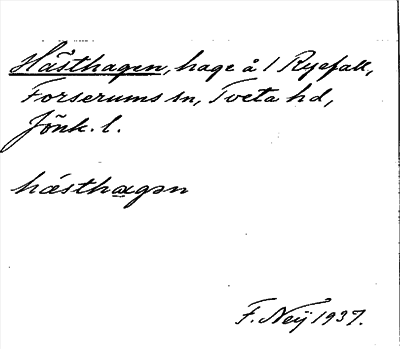 Hästhagen, hage å 1 Ryefall,
Forserums sn, Tveta hd,
Jönk. l.
hǽsthagən
F. Neij 1937.